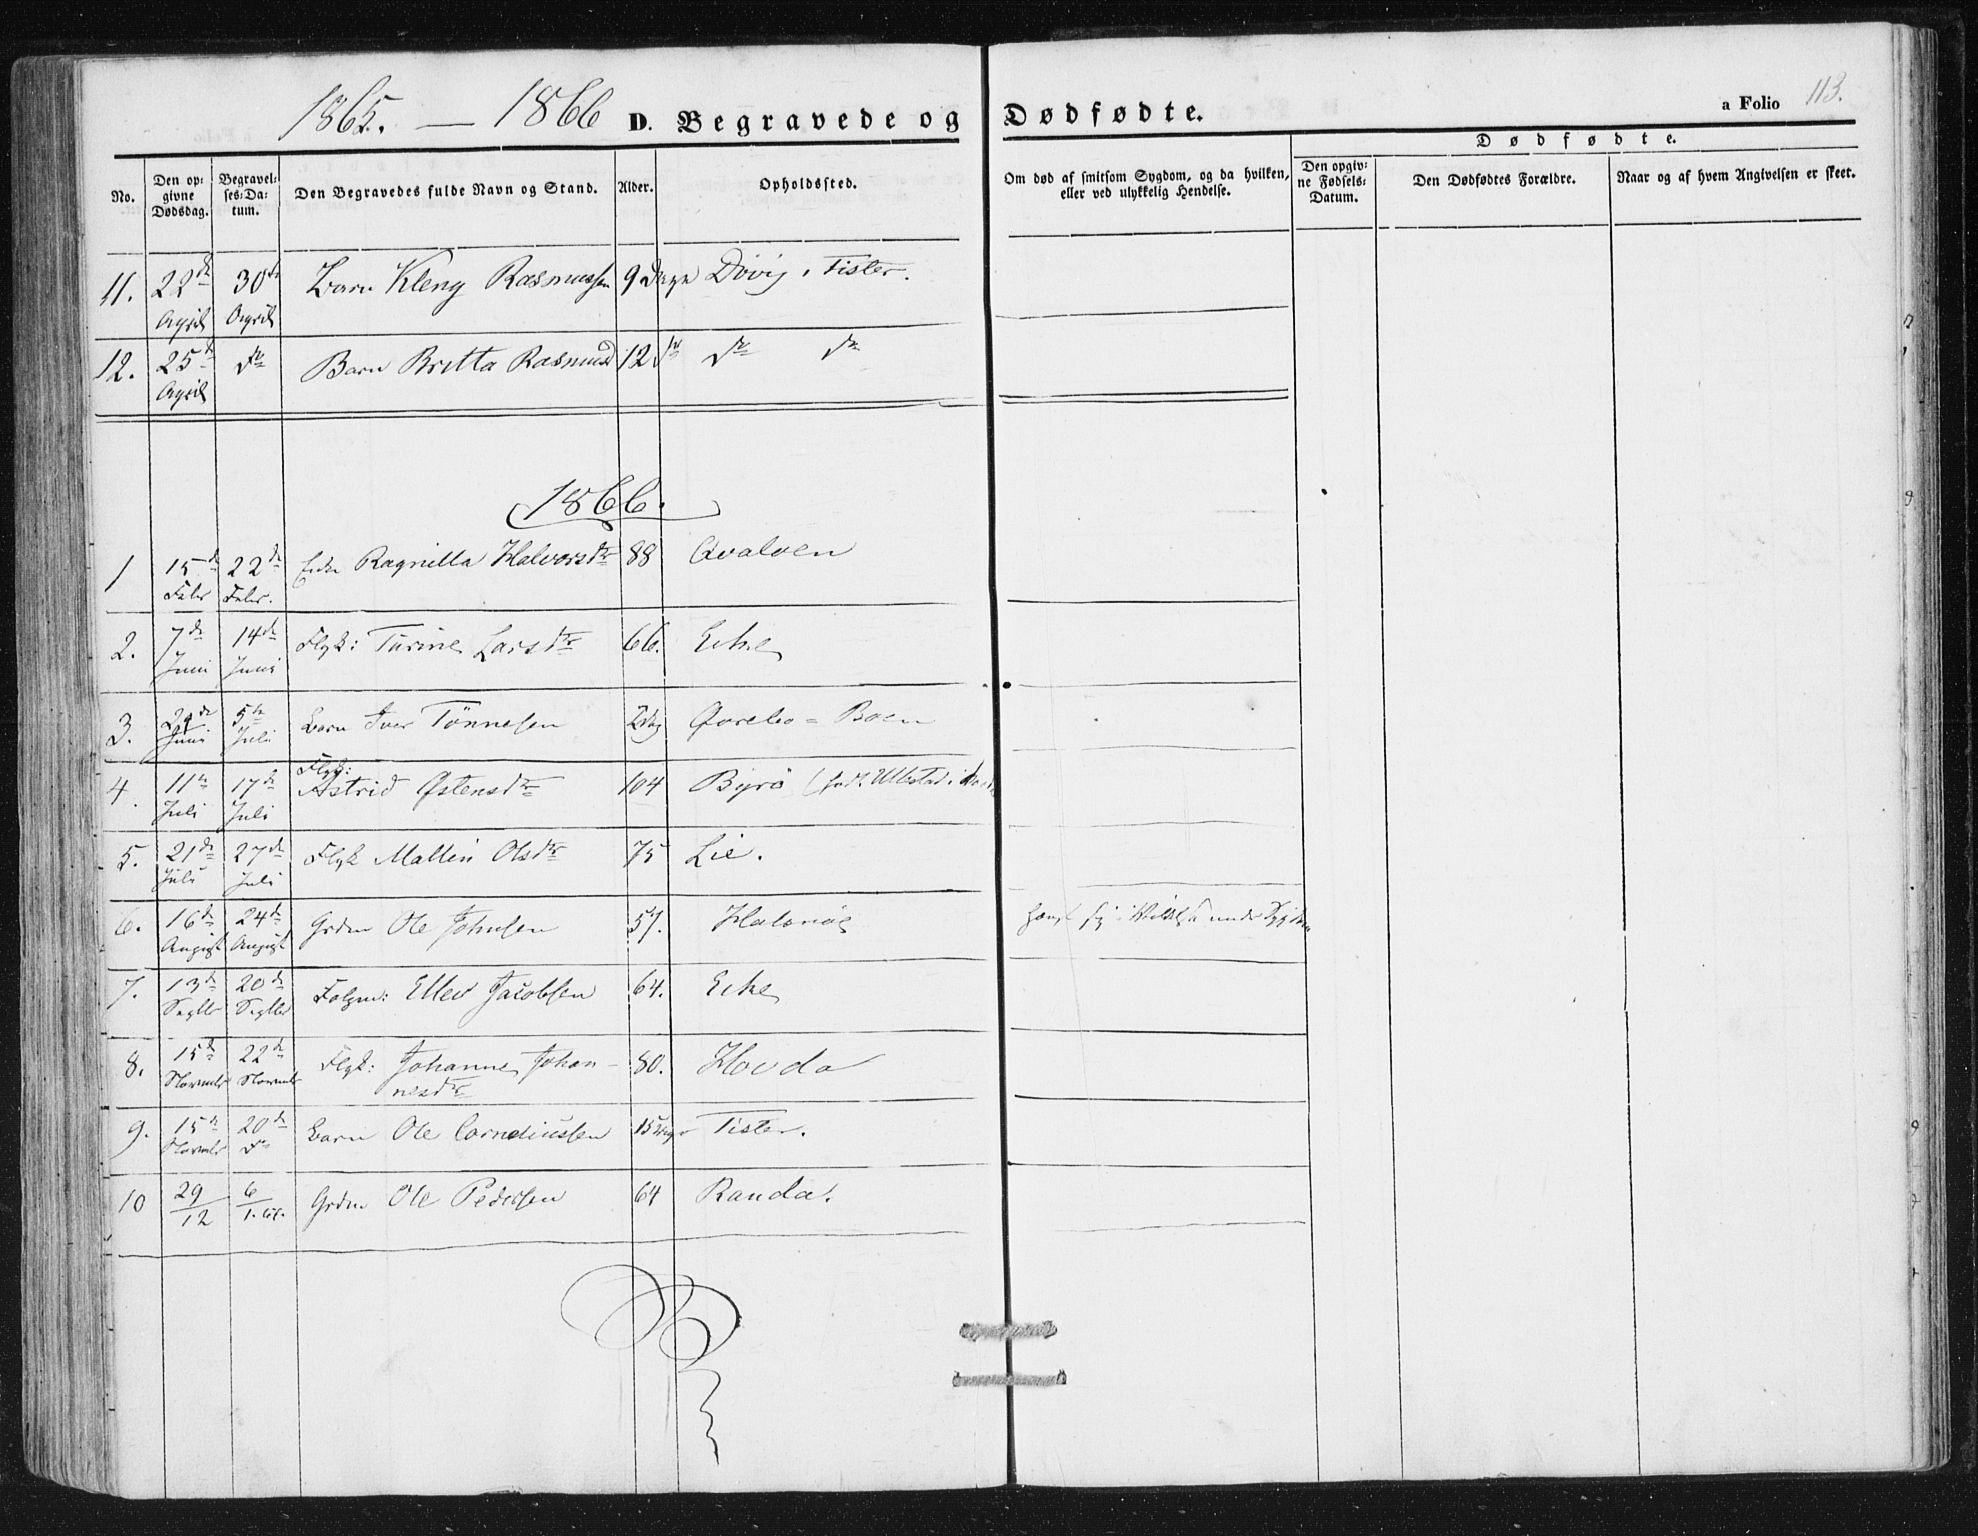 1865. — 1866 D. Begravede og Dødfødte. a Folio 113.
Dødfødte.
No. Den opgivne Dødsdag. Begravelses-Datum. Den Begravedes fulde Navn og Stand. Alder. Opholdssted. Om død af smitsom Sygdom, og da hvilken, eller ved ulykkelig Hendelse. Den opgivne Fødsels-Datum. Den Dødfødtes Forældre. Naar og af hvem Angivelsen er skeet.
11. 22de April 30te April Barn Kleng Rasmussen 9 Dage Døvig, Tister.
12. 25de April do Barn Britta Rasmusd 12 do do do
1866.
1 15de Febr 22de Febr. Enke Ragnilla Halvorsdtr 88 Qvaloen
2. 7de Juni 14de Juni Flgk: Turine Larsdtr 66. Eike
3. 29de Juni 5te Juli Barn Iver Tønnesen 2 dg Qvrebo = Boen
4. 11te Juli 17de Juli Flgk: Astrid Østensdtr 104 Byrø (født Ullestad i
5. 21de Juli 27de Juli Flgk Malleri Olsdtr 75 Lie.
6. 16de August 24de August Grdm Ole Johnsen 57. Halsnøe hængt sig i under
7. 13de Septbr 20de Septbr Folgm: Ellev Jacobsen 64. Eike
8. 15de Novembr 22de Novembr Flgk: Johanne Johan-
nesdtr 80. Hovda
9. 15de Novembr 20de do Barn Ole Corneliussen 15 Dage Tister.
10 29/12 6/1. 67. Grdm Ole Pedersen 64 Randa.